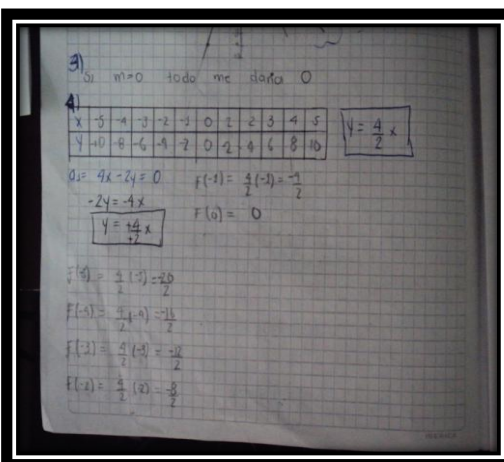 3)
Si m=0 todo me daria 0
4)
X -5 -4 -3 -2 -1 0 1 2 3 4 5
Y -10 -8 -6 -4 -2 0 2 4 6 8 10
y = 4/2 x
a) = 4x - 2y = 0
-2y = -4x
y = +4/+2 x
F(-1) = 4/2 (-1) = -4/2
F(0) = 0
F(-5) = 4/2 (-5) = -20/2
F(-4) = 4/2 (-4) = -16/2
F(-3) = 4/2 (-3) = -12/2
F(-2) = 4/2 (-2) = -8/2